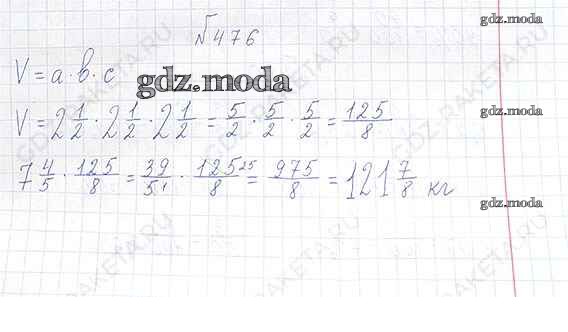 №476
gdz.moda
V = a · b · c
gdz.moda
V = 2 1/2 · 2 1/2 · 2 1/2 = 5/2 · 5/2 · 5/2 = 125/8
gdz.moda
7 4/5 · 125/8 = 39/5 1 · 125 25/8 = 975/8 = 121 7/8 кг
gdz.moda
GDZ-RAKETA.RU